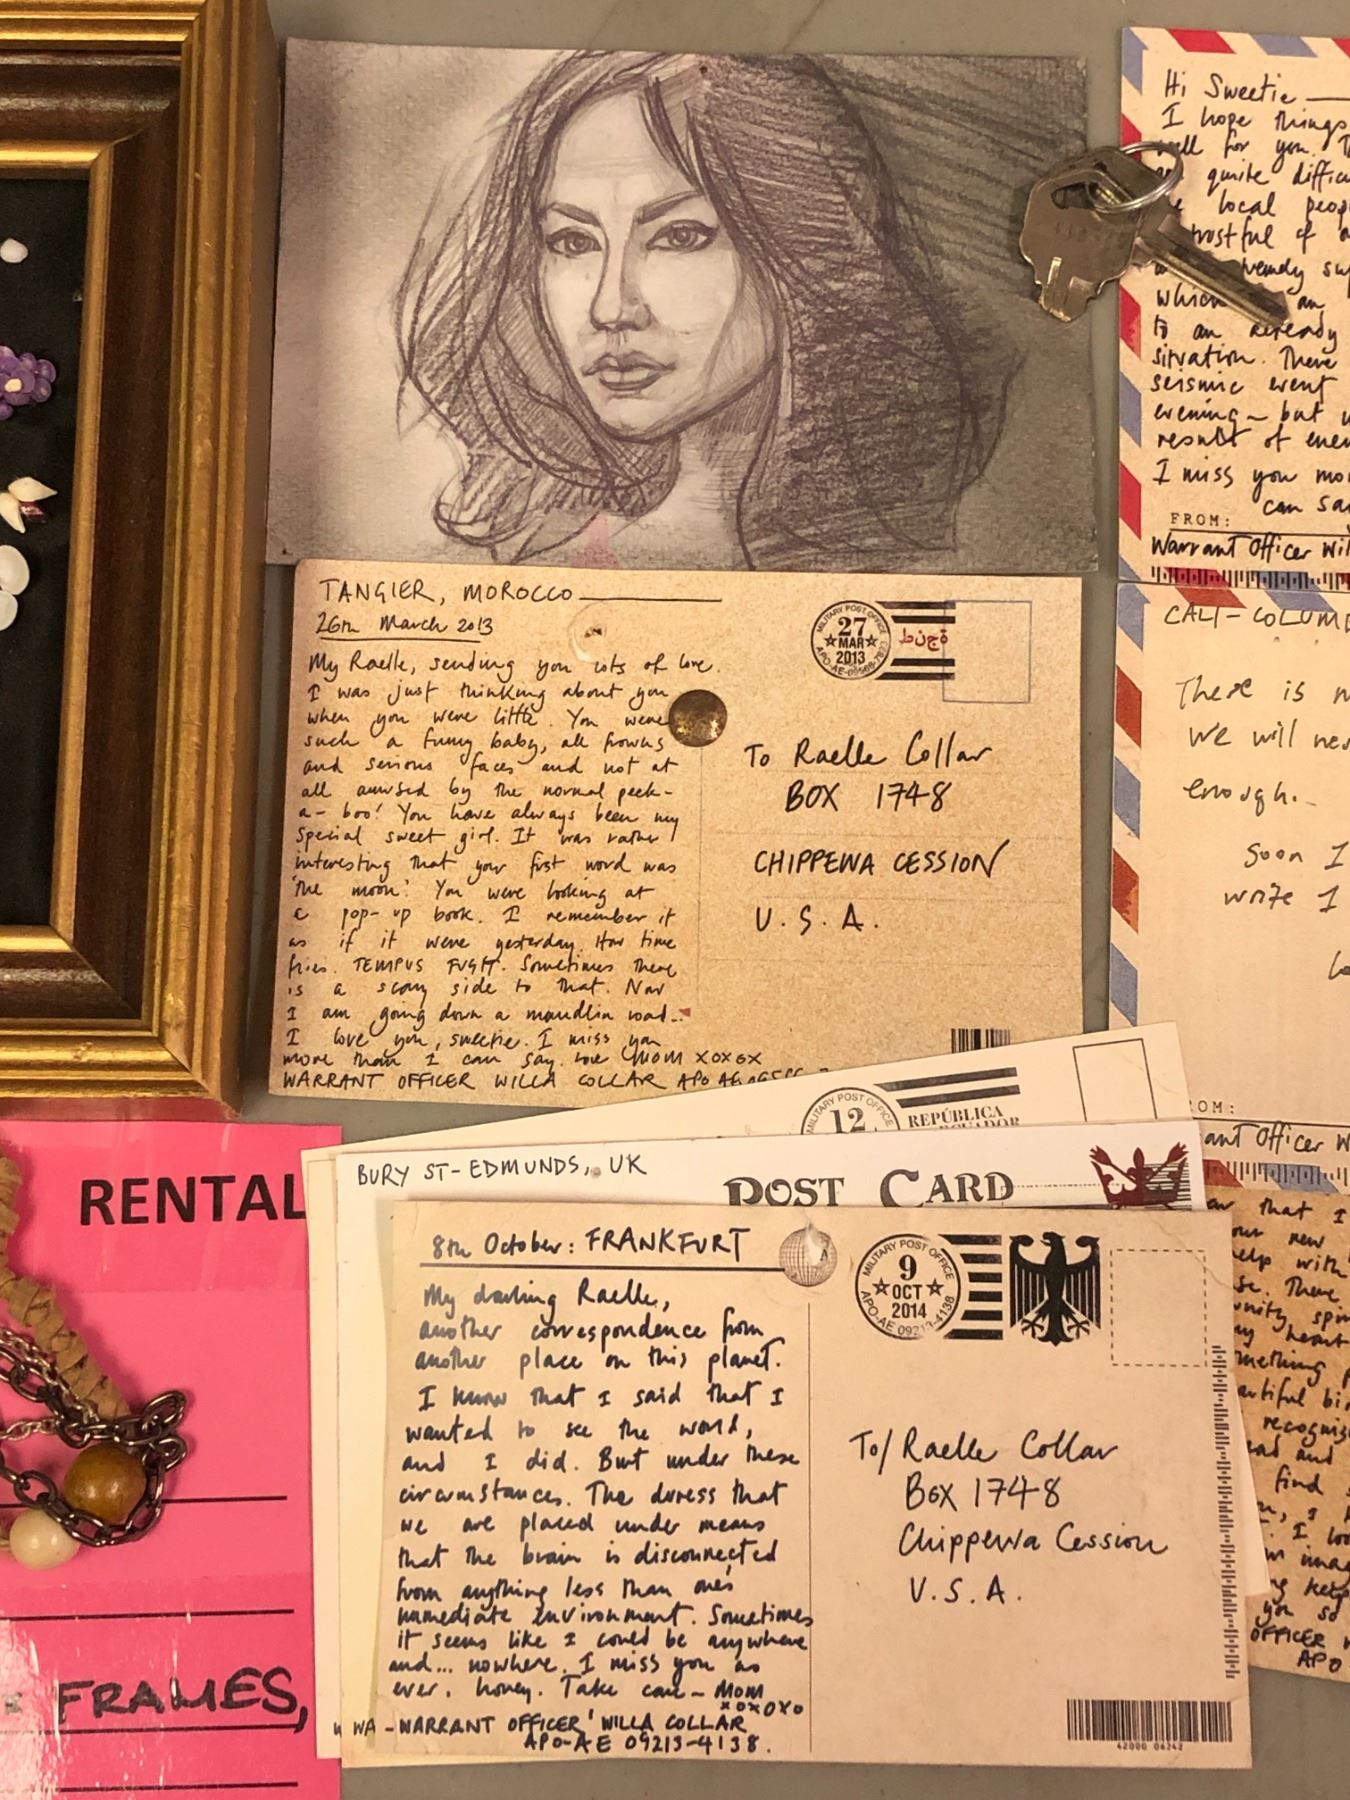 Hi Sweetie
I hope things
well for you.
quite
local
trustful of
which an
to an already
situation. There
seismic event
evening~ but
result of
I miss you
can
FROM:
Warrant Officer
TANGIER, MOROCCO
26th March 2013
My Raelle, sending you lots of love.
I was just thinking about you
when you were little. You were
such a funny baby, all frowns
and serious faces and not at
all amused by the normal peek-
a-boo! You have always been my
special sweet girl. It was rather
interesting that your first word was
'the moon'. You were looking at
a pop-up book. I remember it
as if it were yesterday. How time
flies. TEMPUS FUGIT. Sometimes there
is a scary side to that. Now
I am going down a maudlin road...
I love you, sweetie. I miss you
more than I can say. love Mom xoxox
WARRANT OFFICER WILLA COLLAR APO AE
MILITARY POST OFFICE
27
MAR
2013
طنجة
To Raelle Collar
BOX 1748
CHIPPEWA CESSION
U.S.A.
CALI-
There is
We will
enough.
Soon I
write I
Officer
MILITARY POST OFFICE
12
REPÚBLICA
BURY ST-EDMUNDS, UK
POST CARD
8th October: FRANKFURT
My darling Raelle,
another correspondence from
another place on this planet.
I know that I said that I
wanted to see the world,
and I did. But under these
circumstances. The duress that
we are placed under means
that the brain is disconnected
from anything less than one's
immediate environment. Sometimes
it seems like I could be anywhere
and... nowhere. I miss you as
ever, honey. Take care - Mom
xoxoxo
WA-WARRANT OFFICER WILLA COLLAR
APO-AE 09213-4138.
MILITARY POST OFFICE
9
OCT
2014
APO-AE 09213-4138
To/ Raelle Collar
Box 1748
Chippewa Cession
U.S.A.
42000 06242
that I
new
help with
There
heart
recognize
and
find
you so
OFFICER
APO
RENTAL
FRAMES,